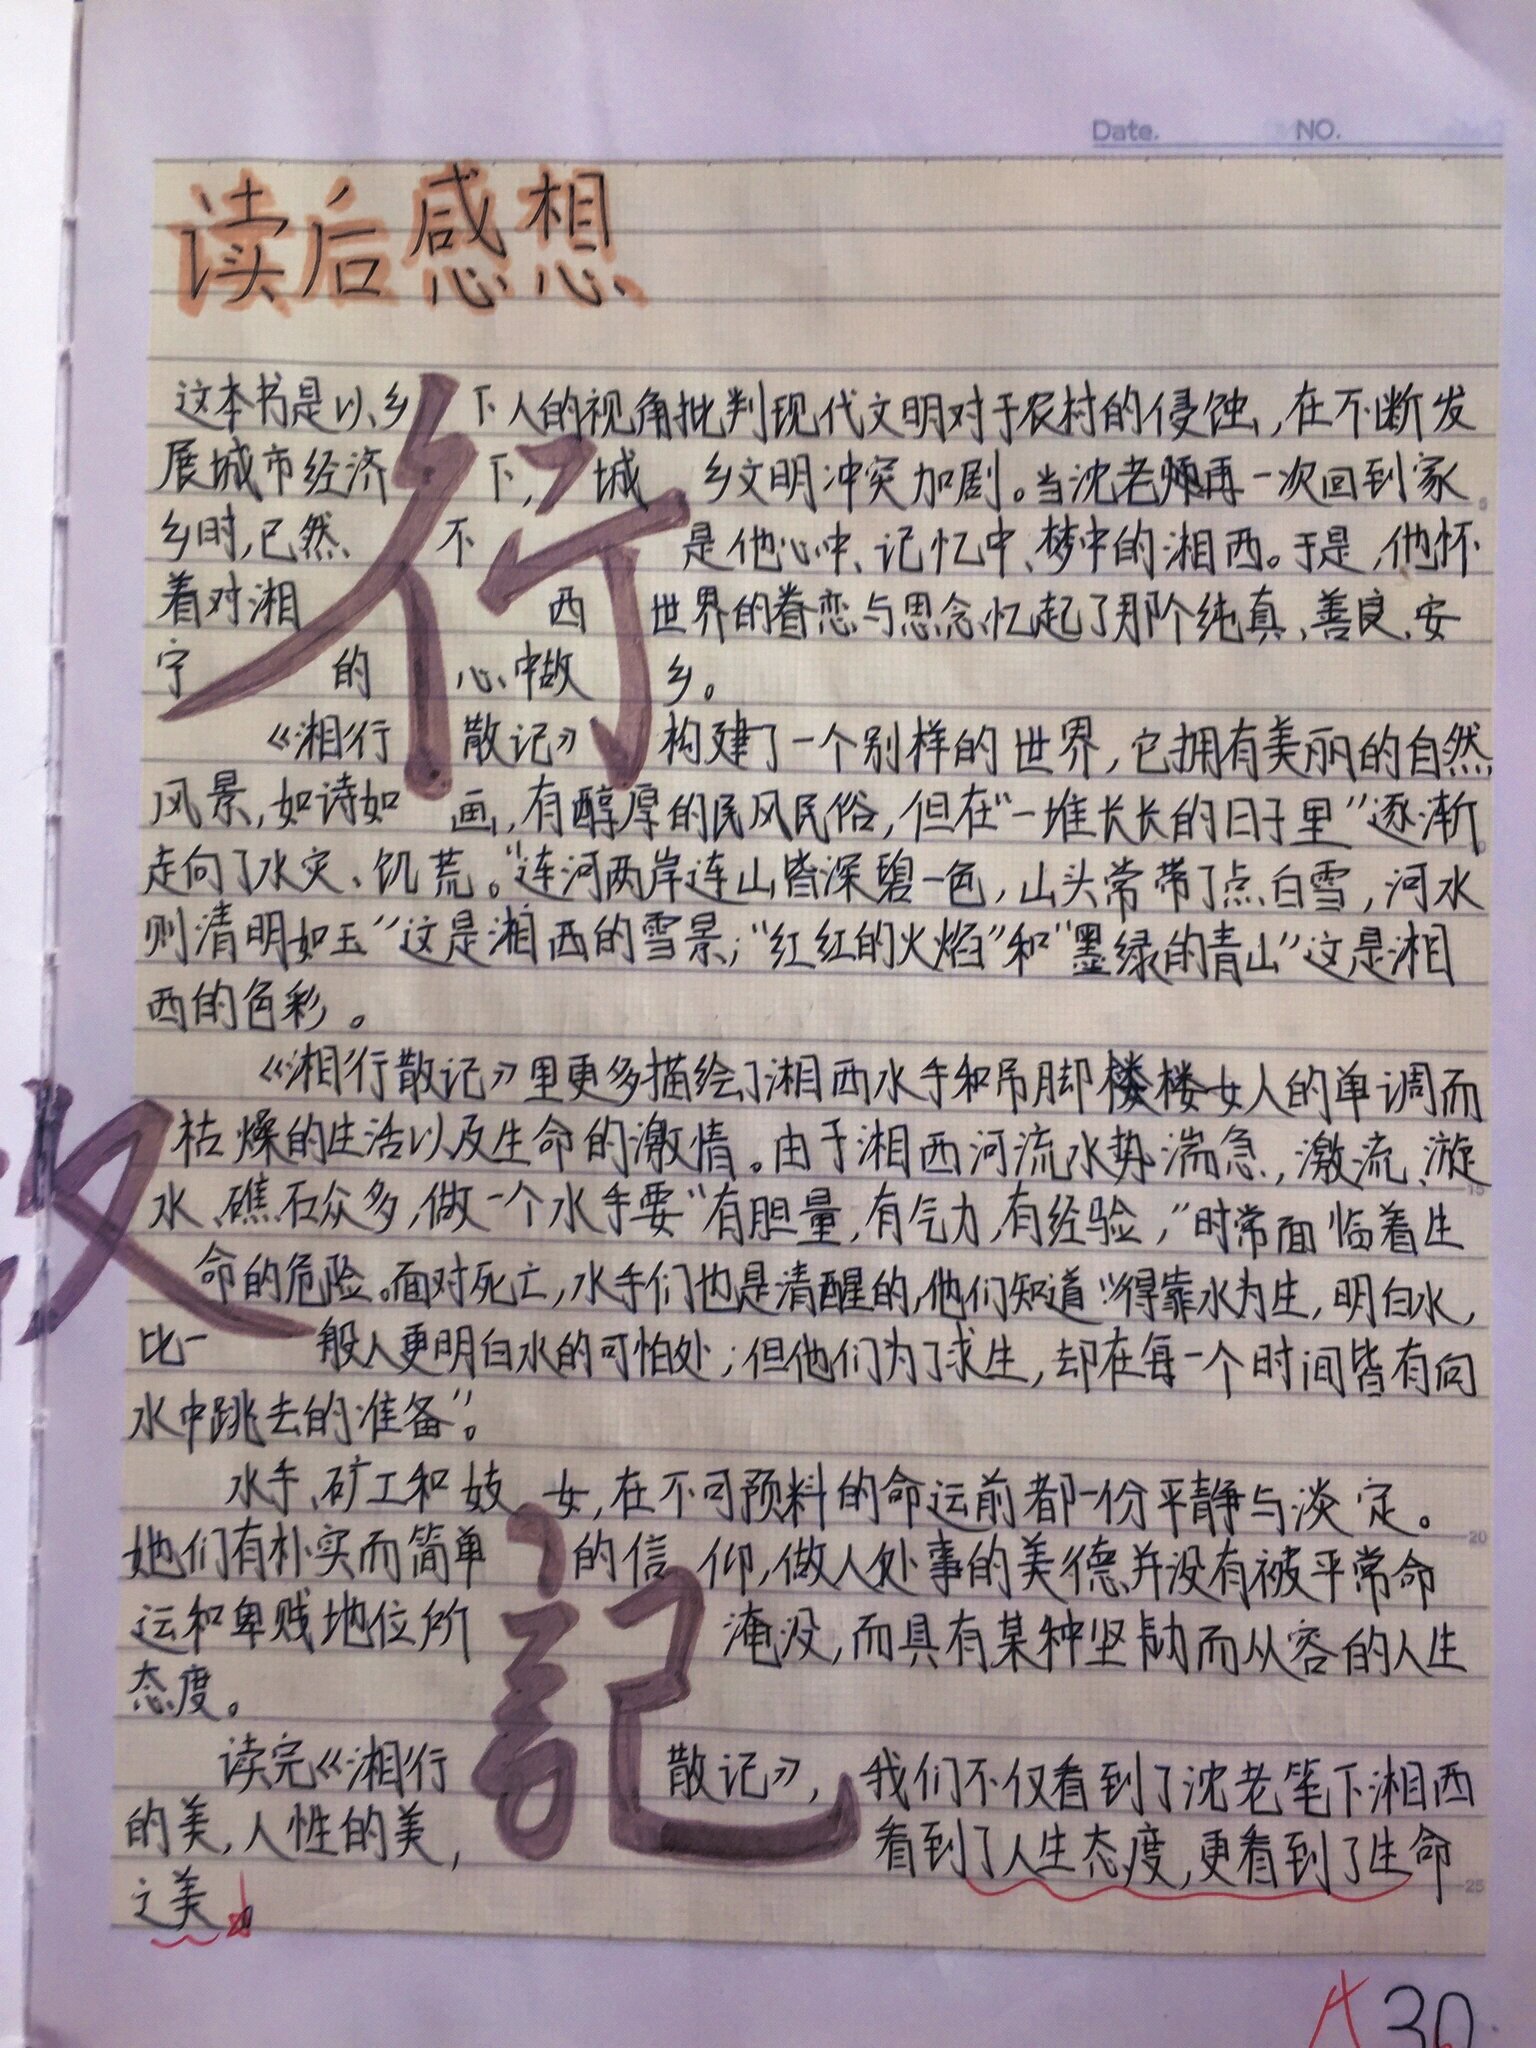 Date. NO.
读后感想
这本书是以乡下人的视角批判现代文明对于农村的侵蚀,在不断发
展城市经济下,城乡文明冲突加剧。当沈老师再一次回到家
乡时,已然不是他心中、记忆中、梦中的湘西。于是,他怀
着对湘西世界的眷恋与思念,忆起了那个纯真、善良、安
宁的心中故乡。
《湘行散记》构建了一个别样的世界,它拥有美丽的自然
风景,如诗如画,有醇厚的民风民俗,但在“一堆长长的日子里”逐渐
走向了水灾、饥荒。“连河两岸连山皆深碧一色,山头常带了点白雪,河水
则清明如玉”这是湘西的雪景;“红红的火焰”和“墨绿的青山”这是湘
西的色彩。
《湘行散记》里更多描绘了湘西水手和吊脚楼楼女人的单调而
枯燥的生活以及生命的激情。由于湘西河流水势湍急,激流、漩
水、礁石众多,做一个水手要“有胆量,有气力,有经验,”时常面临着生
命的危险。面对死亡,水手们也是清醒的,他们知道“得靠水为生,明白水,
比一般人更明白水的可怕处;但他们为了求生,却在每一个时间皆有向
水中跳去的准备”。
水手、矿工和妓女,在不可预料的命运前都一份平静与淡定。
她们有朴实而简单的信仰,做人处事的美德并没有被平常命
运和卑贱地位所淹没,而具有某种坚韧而从容的人生
态度。
读完《湘行散记》,我们不仅看到了沈老笔下湘西
的美,人性的美,看到了人生态度,更看到了生命
之美
行
記
A 30